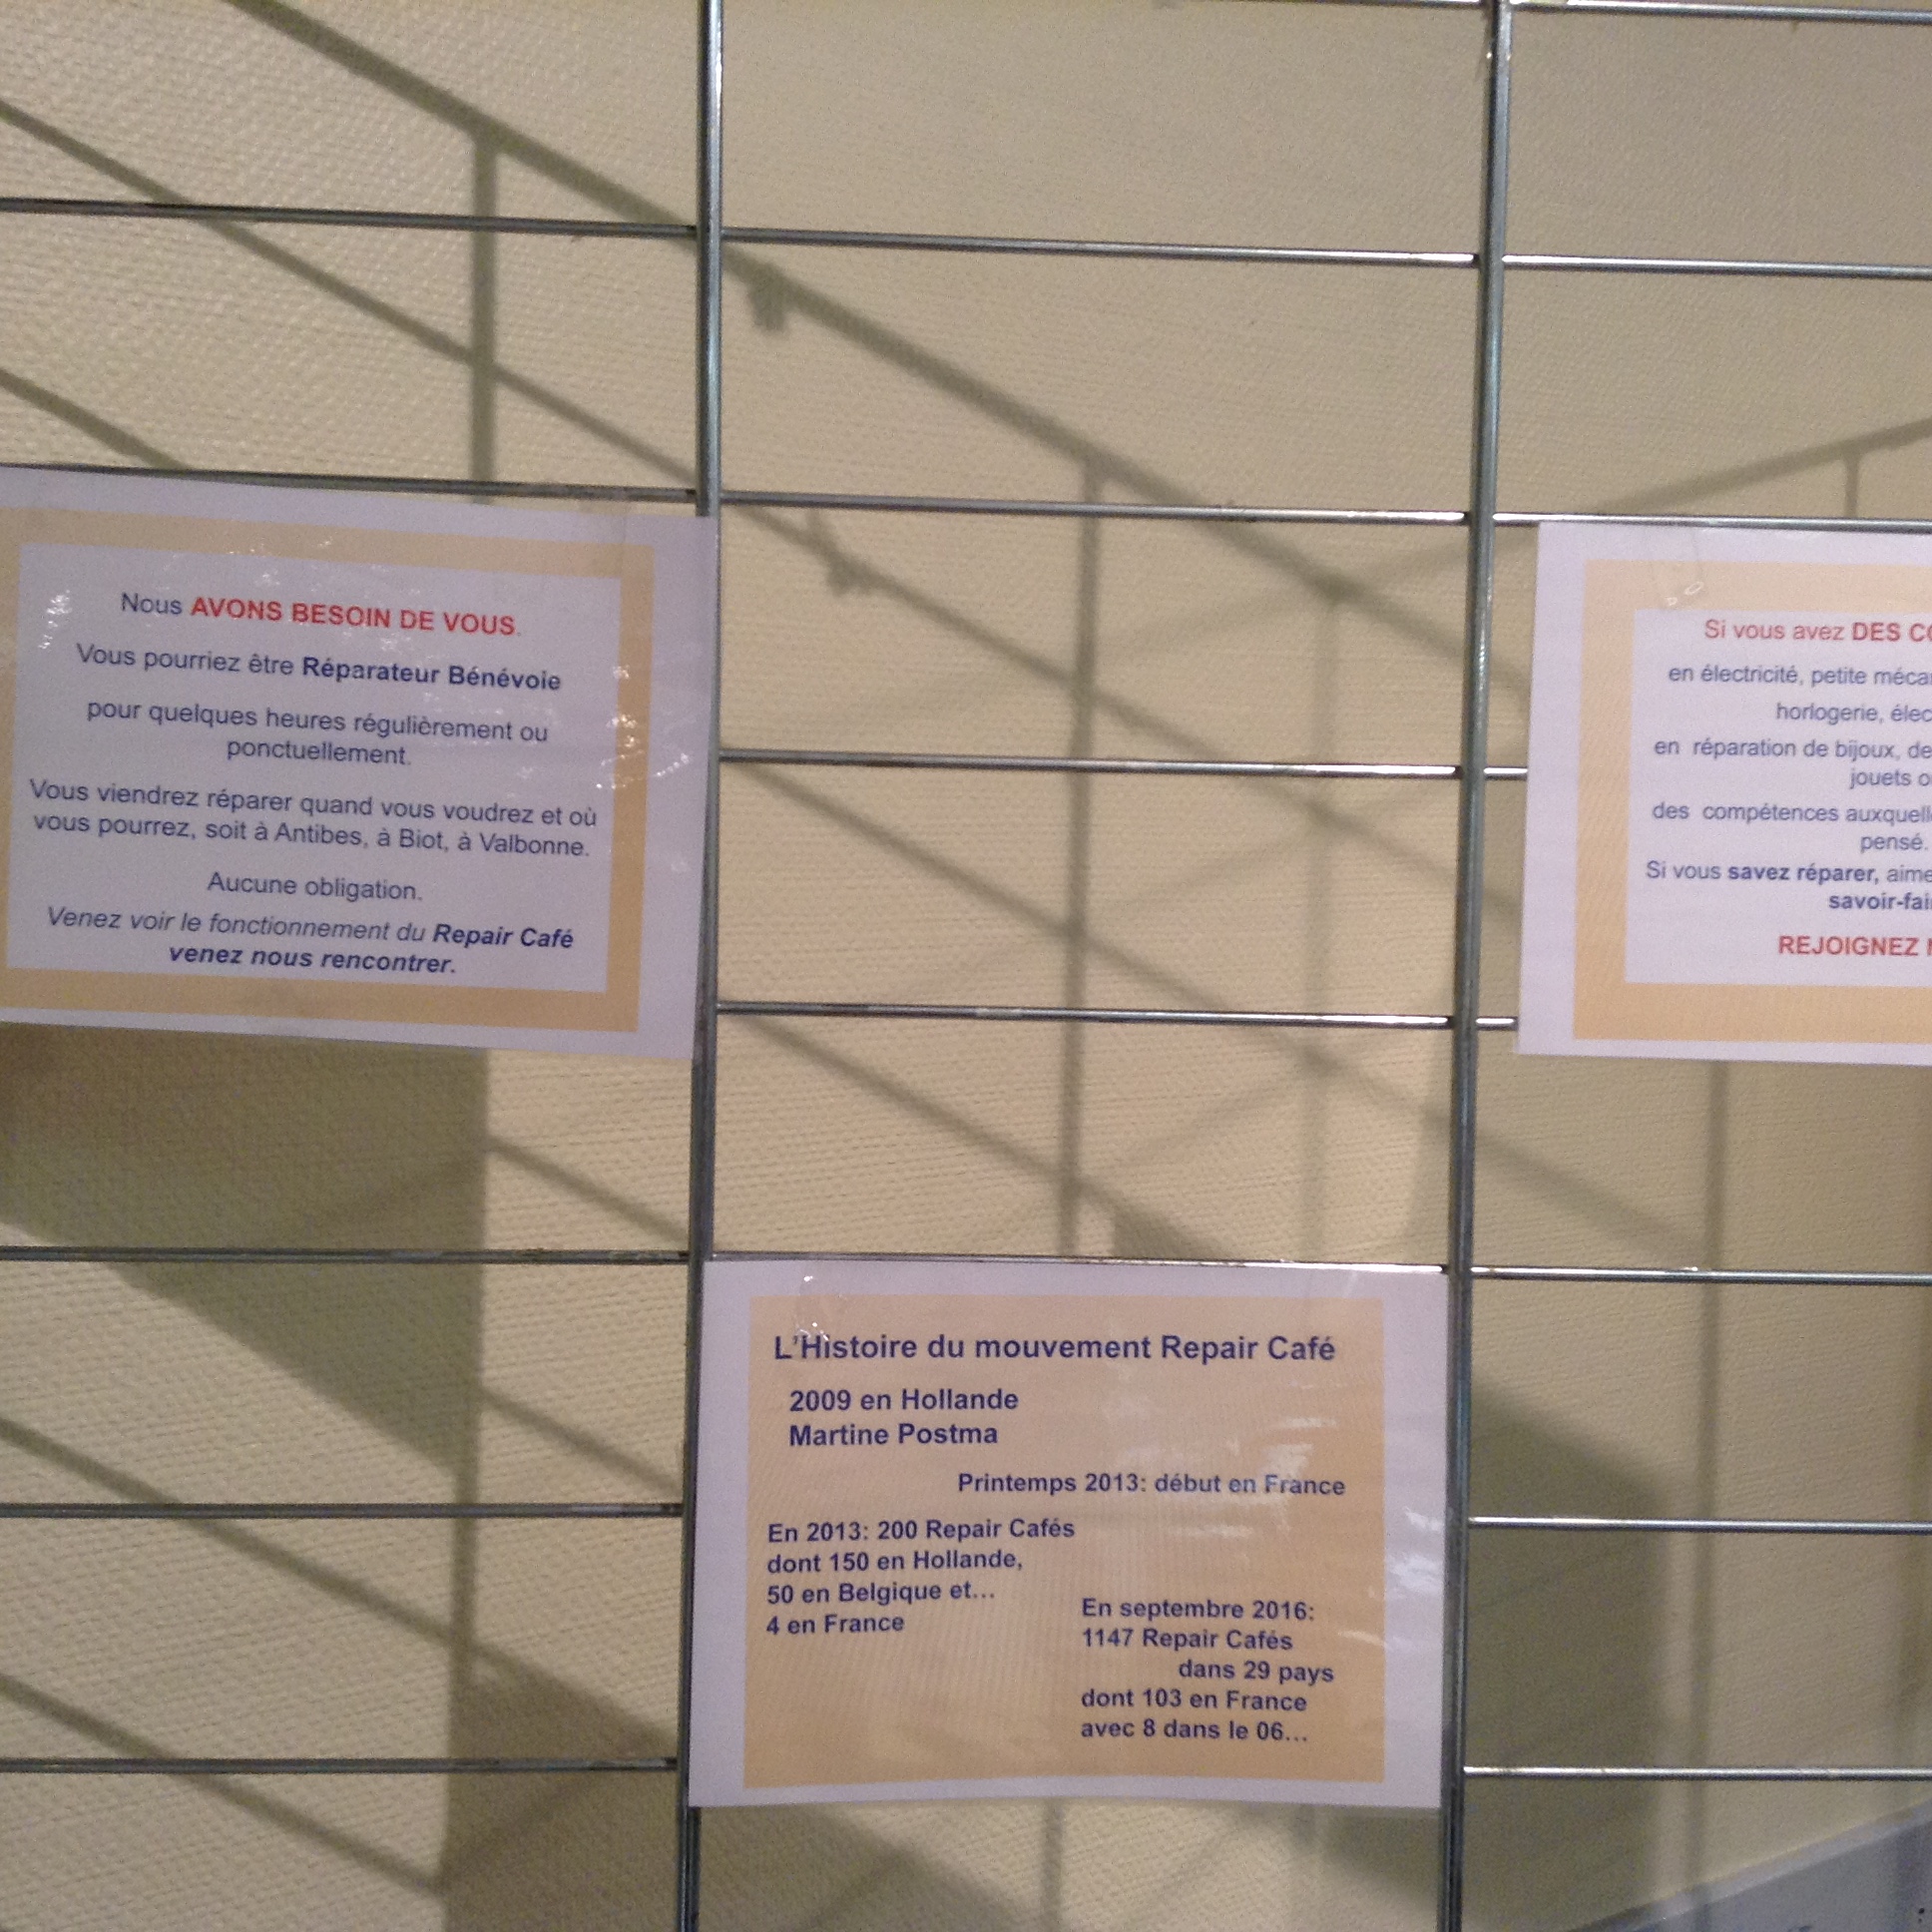 Nous AVONS BESOIN DE VOUS.
Vous pourriez être Réparateur Bénévole
pour quelques heures régulièrement ou
ponctuellement.
Vous viendrez réparer quand vous voudrez et où
vous pourrez, soit à Antibes, à Biot, à Valbonne.
Aucune obligation.
Venez voir le fonctionnement du Repair Café
venez nous rencontrer.
Si vous avez DES
en électricité, petite
horlogerie,
en réparation de bijoux, de
jouets
des compétences
pensé.
Si vous savez réparer,
REJOIGNEZ
L'Histoire du mouvement Repair Café
2009 en Hollande
Martine Postma
Printemps 2013: début en France
En 2013: 200 Repair Cafés
dont 150 en Hollande,
50 en Belgique et...
4 en France
En septembre 2016:
1147 Repair Cafés
dans 29 pays
dont 103 en France
avec 8 dans le 06...